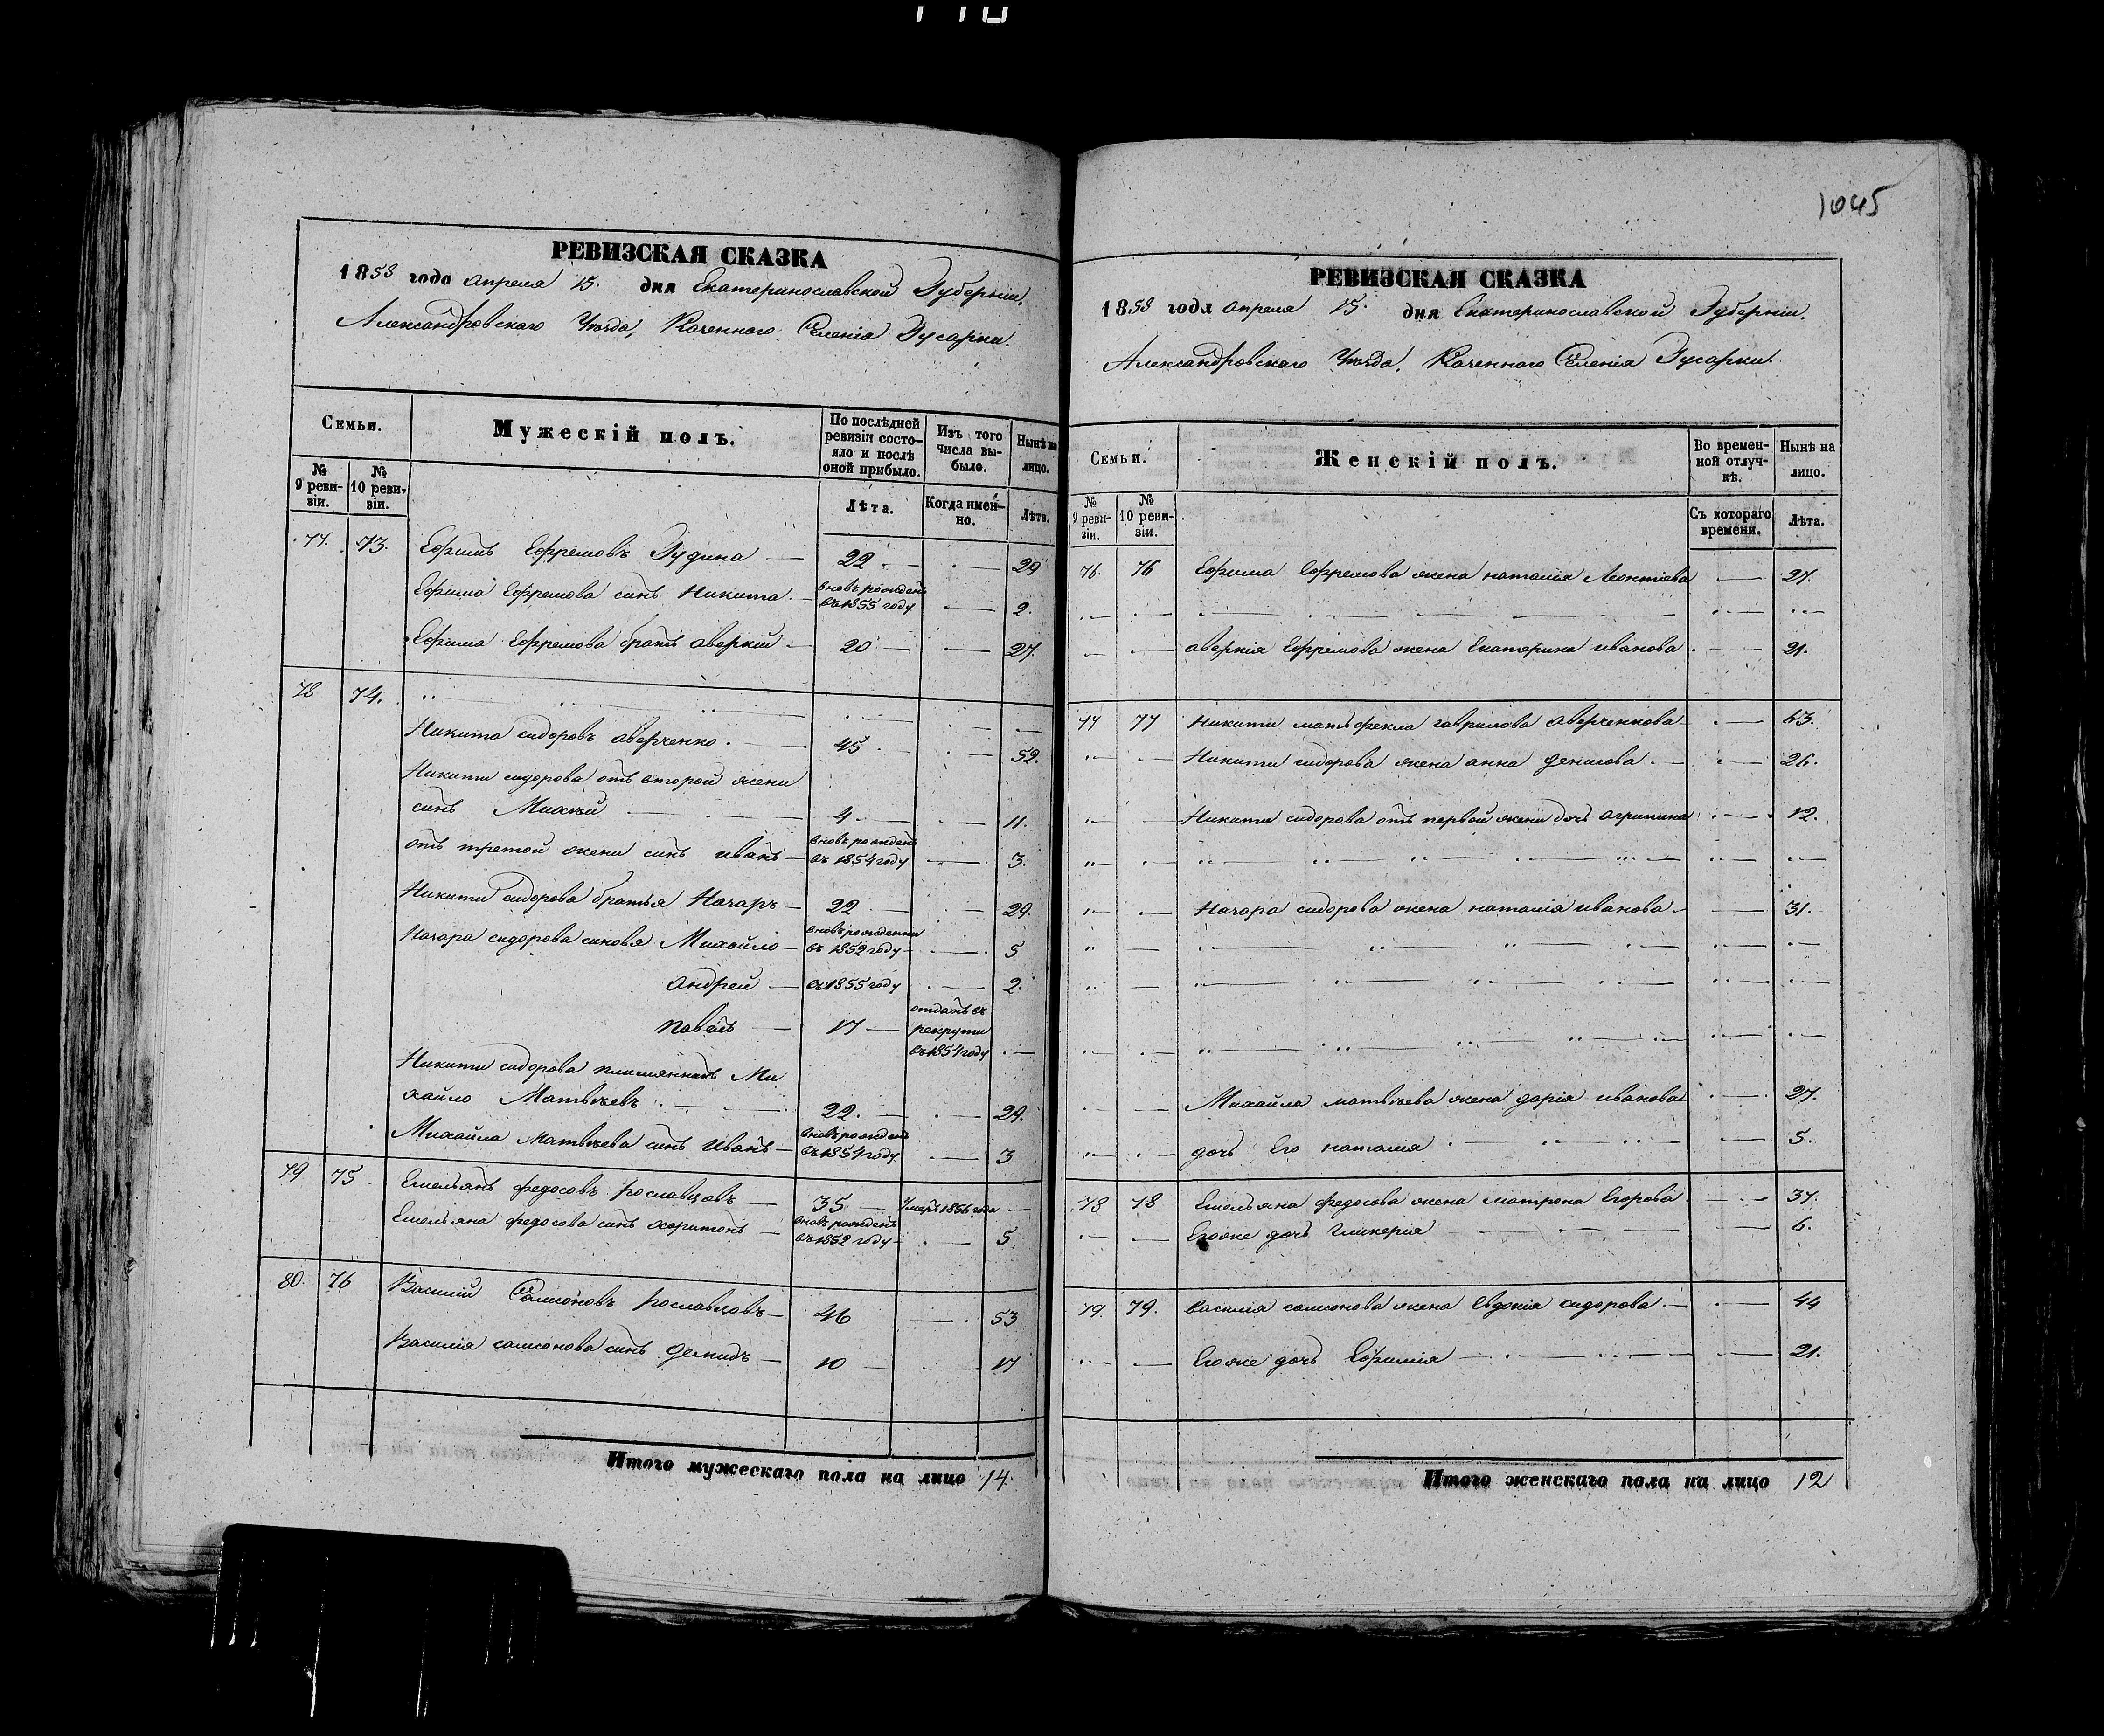 1045
РЕВИЗСКАЯ СКАЗКА
1858 года апреля 15. дня Екатеринославской Губерніи,
Александровскаго Уѣзда, Казенного Селенія Гусарки.
Семьи.
Мужескій полъ.
По послѣдней ревизіи состояло и послѣ оной прибыло.
Изъ того числа выбыло.
Нынѣ на лицо.
№ 9 ревизіи.
№ 10 ревизіи.
Лѣта.
Когда именно.
Лѣта.
77. 73. Ефимъ Ефремовъ Гудина — 22 — 29
Ефима Ефремова синъ Никита — вновь рожденъ въ 1855 году — 2.
Ефима Ефремова братъ аверкій — 20 — 27.
78 74.
Никита сидоровъ аверченко — 45 — 52.
Никити сидорова отъ второй жени
синъ Михѣй — 4 — 11.
отъ третой жени синъ иванъ — вновь рожденъ въ 1854 году — 3.
Никити сидорова братья Назаръ — 22 — 29.
Назара сидорова синовя Михайло — вновь рожденни въ 1852 году — 5
андрей — въ 1855 году — 2.
павелъ — 17 — отданъ въ рекрути въ 1854 году —
Никити сидорова племянникъ Ми
хайло Матвѣевъ — 22. — 29.
Михайла матвѣева синъ иванъ — вновь рожденъ въ 1854 году — 3
79 75. Емельянъ федосовъ рославцовъ — 35 — умеръ 1856 года —
Емельяна федосова синъ харитонъ — вновь рожденъ въ 1852 году — 5.
80. 76 Василий Самсоновъ рославцовъ — 46 — 53
Василія самсонова синъ демидъ — 10 — 17
Итого мужескаго пола на лицо 14.
РЕВИЗСКАЯ СКАЗКА
1858 года апреля 15. дня Екатеринославской Губерніи.
Александровскаго Уѣзда, Казенного Селенія Гусарки.
Семьи.
Женскій полъ.
Во временной отлучкѣ.
Нынѣ на лицо.
№ 9 ревизіи.
№ 10 ревизіи.
Съ котораго времени.
Лѣта.
76. 76 Ефима Ефремова жена наталія Леонтіева — 27.
аверкія Ефремова жена Екатерина иванова — 21.
77 77 Никити мать фекла гаврилова аверченкова — 63.
Никити сидорова жена анна денисова — 26.
Никити сидорова отъ первой жени дочь агрипина — 12.
Назара сидорова жена наталія иванова — 31.
Михайла матвѣева жена дарія иванова — 27.
дочь Его наталія — 5.
78 78 Емельяна федосова жена матрона Егорова — 37.
Егоже дочь гликерія — 6.
79. 79. василія самсонова жена Евдокія сидорова — 44
Егоже дочь Ефимія — 21.
Итого женскаго пола на лицо 12